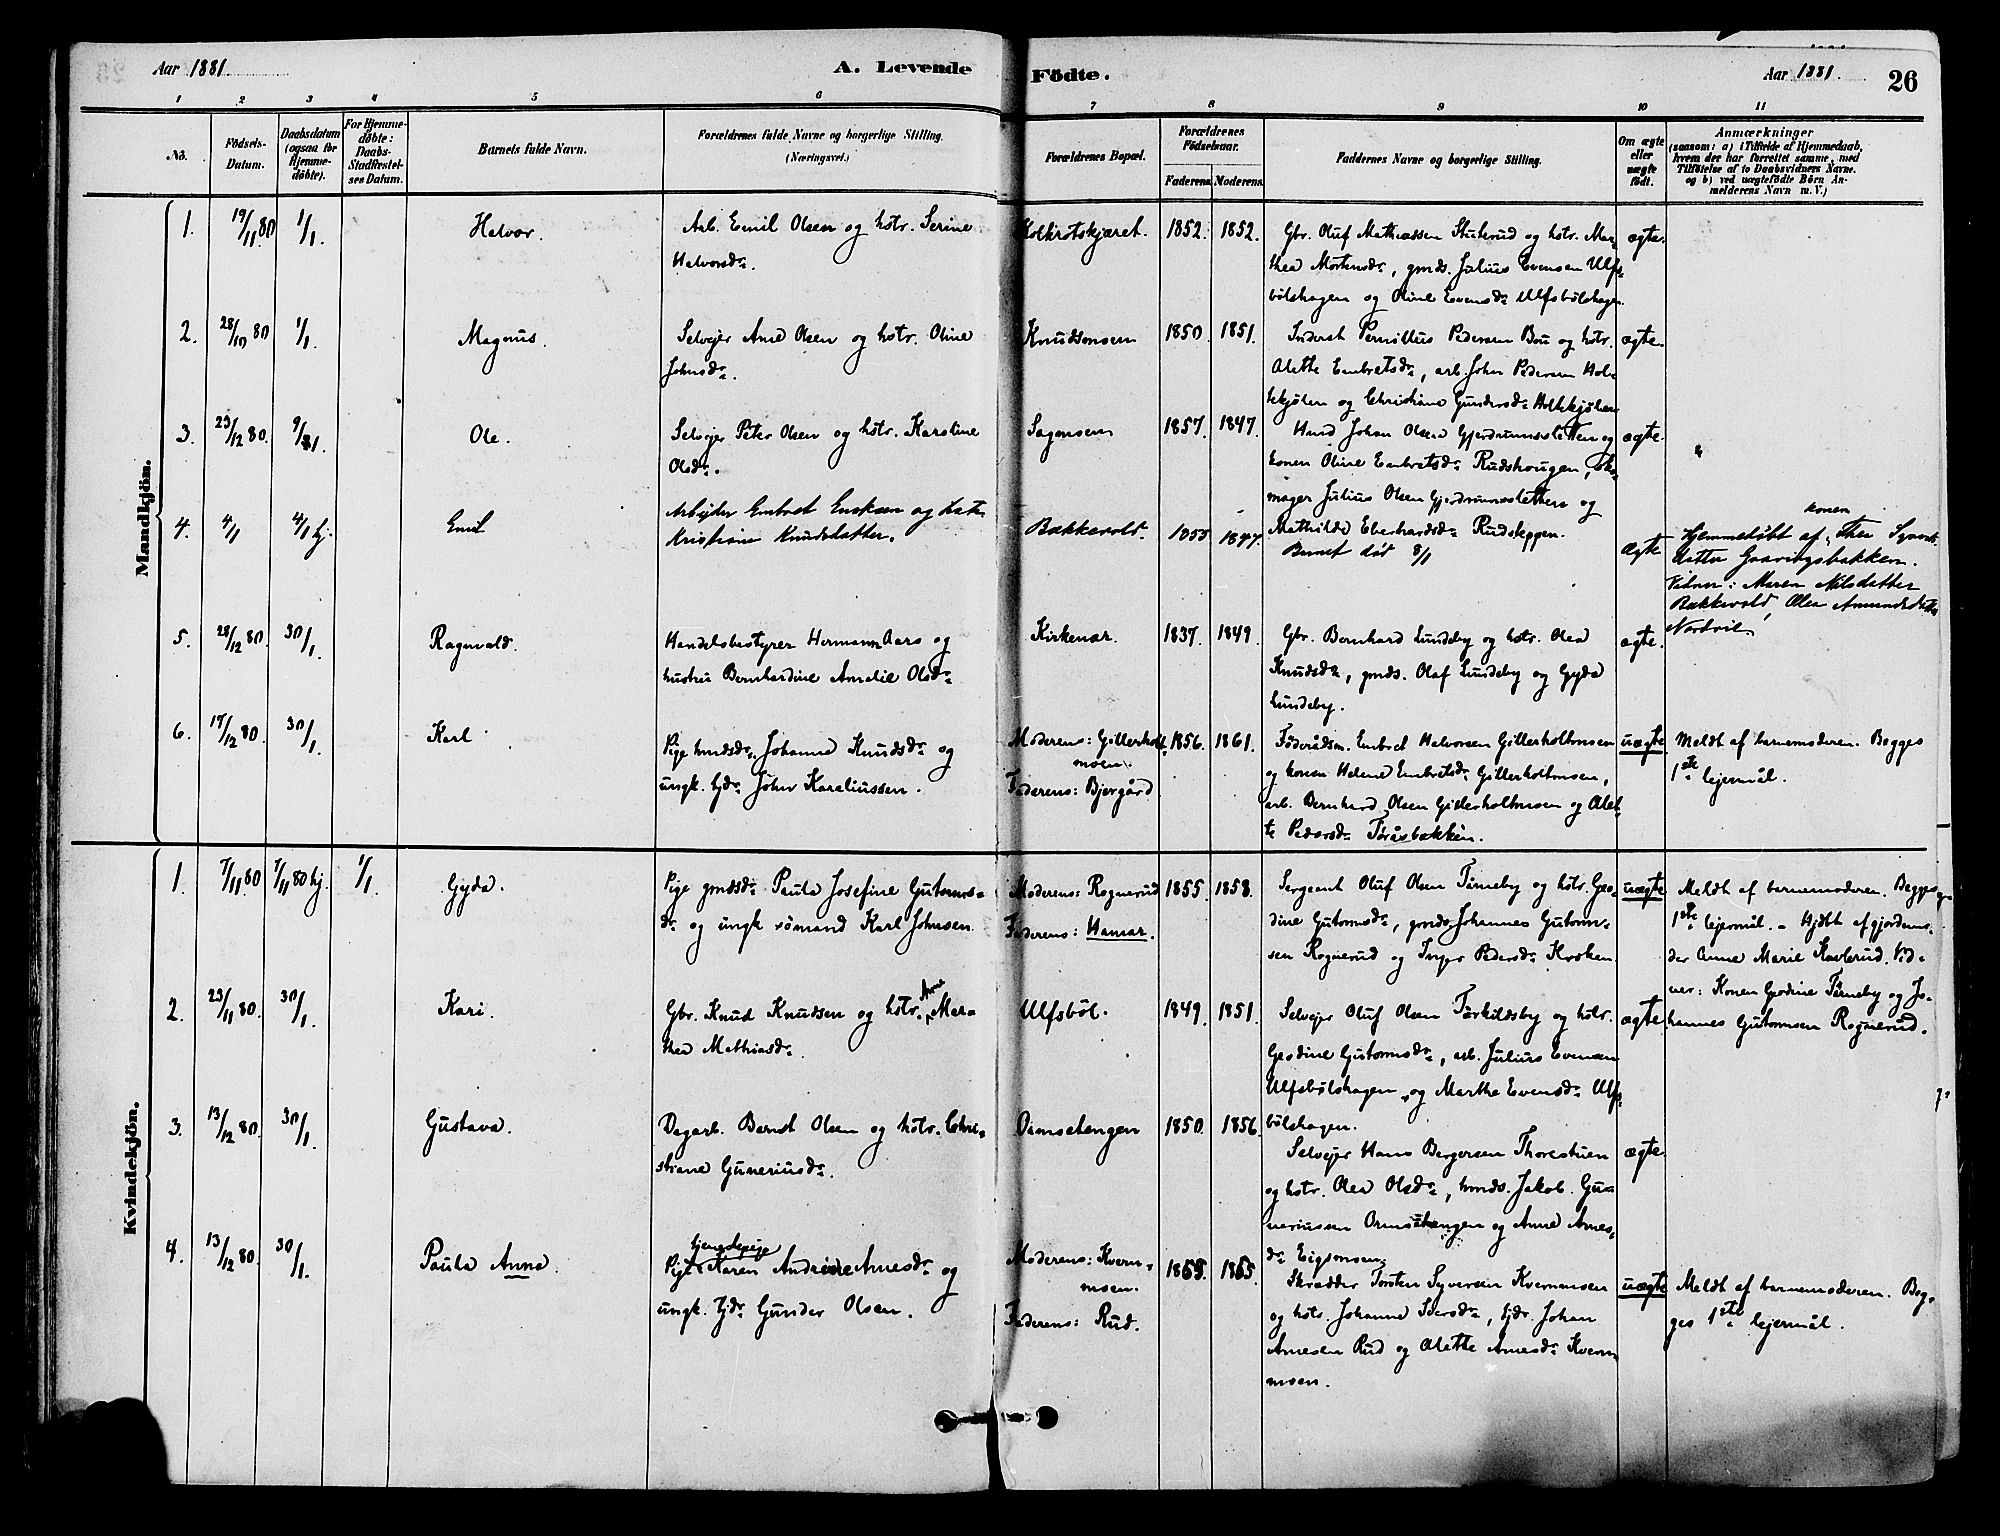 Aar 1881.
A. Levende Födte.
Aar 1881.
26
1 2 3 4 5 6 7 8 9 10 11
No.
Födsels-
Datum.
Daabsdatum
(ogsaa for
Hjemme-
döbte).
For Hjemme-
döbte:
Daabs-
Stadfæstel-
ses Datum.
Barnets fulde Navn.
Forældrenes fulde Navne og borgerlige Stilling.
(Næringsvei.)
Forældrenes Bopæl.
Forældrenes
Födselsaar.
Faderens. Moderens.
Faddernes Navne og borgerlige Stilling.
Om ægte
eller
uægte
födt.
Anmærkninger
(saasom: a) i Tilfælde af Hjemmedaab,
hvem der har forrettet samme, med
Tilföielse af to Daabsvidners Navne.
og b) ved uægtefödte Börn An-
melderens Navn m. V.)
Mandkjön.
1. 19/11 80 1/1. Halvor.
Arb. Emil Olsen og hstr. Serine
Halvorsdr.
Kolkrotskjæret. 1852. 1852.
Gbr. Oluf Mathiassen Stuterud og hstr. Mar-
thea Mortensdr, gmds. Julius Evensen Ulfs-
bölshagen og Oline Evensdr Ulfsbölshagen.
ægte.
2. 28/10 80 1/1. Magnus.
Selvejer Arne Olsen og hstr. Oline
Johnsdr.
Knudsmoen 1850. 1851.
Inderst Pernillus Pedersen Bou og hstr.
Alette Embretsdr, arb. John Pedersen Hol-
tekjölen og Christiane Gundersdr Holtekjölen
ægte.
3. 23/12 80. 9/81. Ole.
Selvejer Peter Olsen og hstr. Karoline
Olsdr.
Sagmoen 1857. 1847.
Hmd Johan Olsen Gjerdrumssletten og
konen Oline Embretsdr Rudshaugen, sko-
mager Julius Olsen Gjerdrumssletten og
Mathilde Eberhardsdr Rudseggen.
ægte.
"
4. 4/1 4/1 hj. Emil
Arbejder Embret Eriksen og hstr
Kristiane Knudsdatter.
Bakkevold. 1855 1847.
Barnet död 8/1
Ægte
Hjemmedöbt af konen Thea Syvers-
datter Gaavitgsbakken.
Vidner: Maren Nilsdatter
Bakkevold, Olea Amundsdatter
Nordvie
5. 28/12 80. 30/1. Ragnvald.
Handelsbestyrer Hermann Aars og
hustru Bernhardine Amalie Olsdr
Kirkenær. 1837. 1849.
Gbr. Bernhard Lundeby og hstr. Olea
Knudsdr, gmds. Olaf Lundeby og Gyda
Lundeby.
ægte.
6. 17/12 80. 30/1. Karl
Pige hmdsdr. Johanne Knudsdr og
ungk. tjdr. John Kareliussen.
Moderens: Gillerholt-
moen.
Faderens: Bjergård
1856. 1861.
Föderådsm. Embret Halvorsen Gillerholtmoen
og konen Helene Embretsdr Gillerholtmoen,
arb. Bernhard Olsen Gillerholtmoen og Alet-
te Pedersdr Töråsbakken.
uægte
Meldt af barnemoderen. Begges
1ste lejermål.
Kvindekjön.
1. 7/11 80 7/11 80 hj. 1/1. Gyda.
Pige gmdsdr. Paula Josefine Gutorms-
dr og ungk sömand Karl Johnsen.
Moderens: Rognerud
Faderens: Hamar.
1855. 1858.
Sergeant Oluf Olsen Törneby og hstr. Geo-
dine Gutormsdr, gmds. Johannes Gutorm-
sen Rognerud og Inger Pedersdr Kroken
uægte
Meldt af barnemoderen. Begges
1ste lejermål. - Hjdbt af gjordemo-
der Anne Marie Kavlerud. Vid-
ner: Konen Geodine Törneby og Jo-
hannes Gutormsen Rognerud.
2. 23/11 80. 30/1. Kari.
Gbr. Knud Knudsen og hstr. Anne Mar-
thea Mathiasdr.
Ulfsböl. 1849. 1851.
Selvejer Oluf Olsen Törkildsby og hstr.
Geodine Gutormsdr, arb. Julius Evensen
Ulfsbölshagen og Marthe Evensdr Ulfs-
bölshagen.
ægte.
3. 13/12 80. 30/1. Gustava.
Dagarb. Bernt Olsen og hstr. Chri-
stiane Guneriusdr.
Ormsetengen 1850. 1856.
Selvejer Hans Bergersen Thorestuen
og hstr. Olea Olsdr, hmds. Jakob Gu-
neriussen Ormsetengen og Anne Arnes-
dr Eigsmoen
ægte.
4. 13/12 80. 30/1. Paula Anna.
Pige tjenestepige Karen Andrine Arnesdr og
ungk. tjdr Gunder Olsen.
Moderens: Kvern-
moen.
Faderens: Rud.
Skrædder Torsten Syversen Kvernmoen
og hstr. Johanne Iversdr, tjdr. Johan
Arnesen Rud og Alette Arnesdr Kvern-
moen.
uægte
Meldt af barnemoderen. Beg-
ges 1ste lejermål.